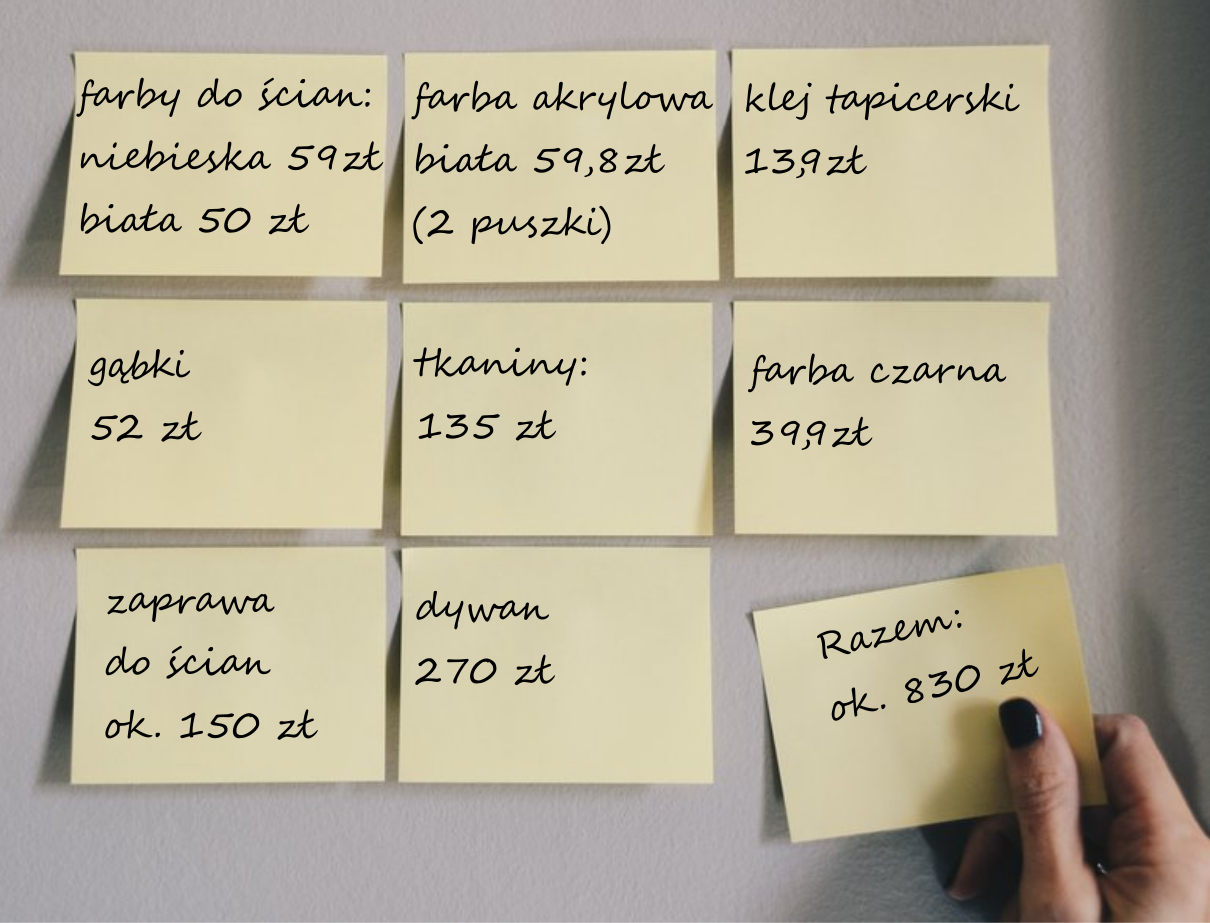 farby do ścian:
niebieska 59zł
biała 50 zł
farba akrylowa
biała 59,8zł
(2 puszki)
klej tapicerski
13,9zł
gąbki
52 zł
tkaniny:
135 zł
farba czarna
39,9zł
zaprawa
do ścian
ok. 150 zł
dywan
270 zł
Razem:
ok. 830 zł